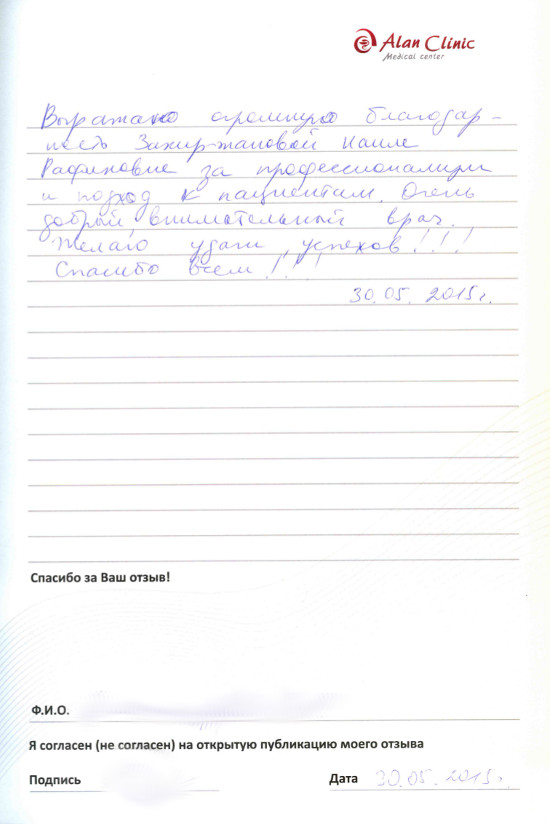 Alan Clinic
Medical center
Выражаю огромную благодар-
ность Закир-жановой Наиле
Рафиковне за профессионализм
и подход к пациентам. Очень
добрый, внимательный врач.
Желаю удачи, успехов!!!
Спасибо всем!!!
30.05. 2015г.
Спасибо за Ваш отзыв!
Ф.И.О.
Я согласен (не согласен) на открытую публикацию моего отзыва
Подпись Дата 30.05. 2015г.